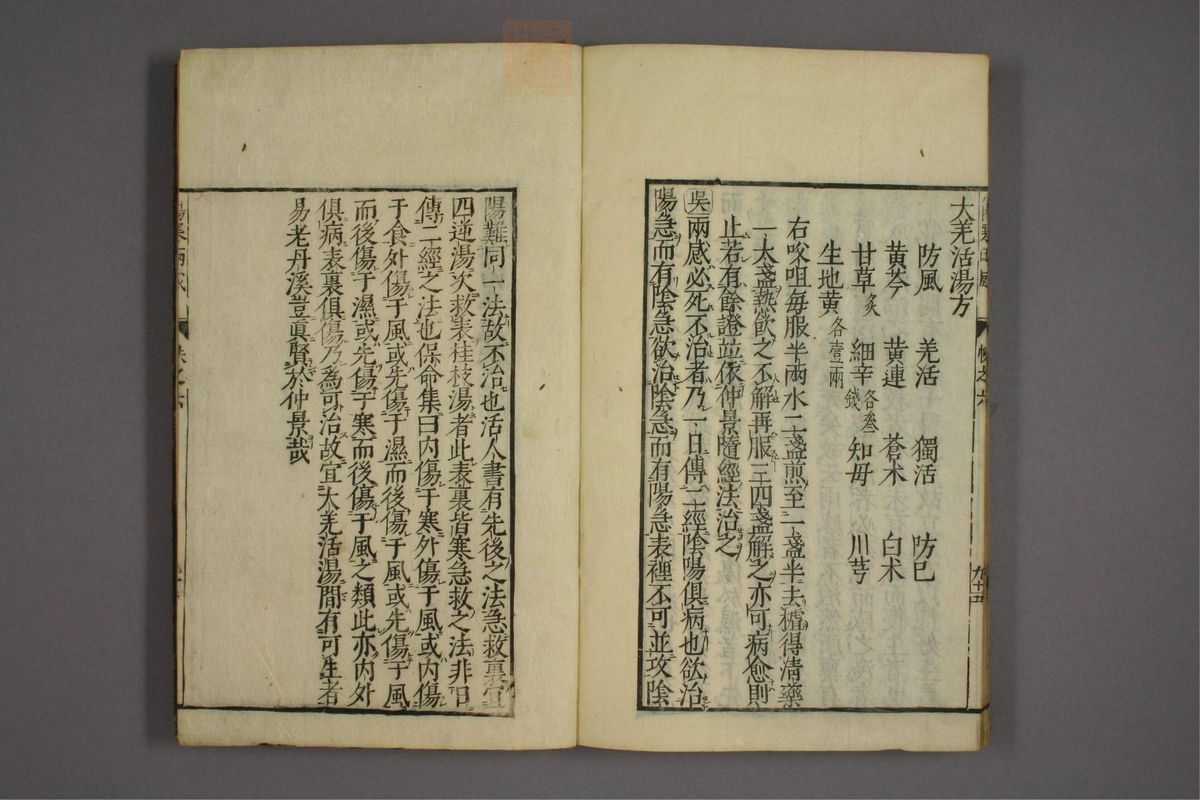 大羌活湯方
防風　羌活　獨活　防已
黄芩　黄連　蒼木　白木
甘草炙　細辛各叁錢　知母　川芎
生地黄各壹兩
右㕮咀每服半兩水二盞煎至一盞半去柤得清藥
一大盞熱飲之不解再服三四盞解之亦可病愈則
止若有餘證並依仲景隨經法治之
吳兩感必死不治者乃一日傳二經陰陽俱病也欲治
陽急而有陰急欲治陰急而有陽急表裡不可並攻陰
陽難同一法故不治也活人書有先後之法急救裏宜
四逆湯次救表桂枝湯者此表裏皆寒急救之法非日
傳二經之法也保命集曰内傷于寒外傷于風或内傷
于食外傷于風或先傷于濕而後傷于風或先傷于風
而後傷于濕或先傷于寒而後傷于風之類此亦内外
俱病表裏俱傷乃為可治故宜大羌活湯間有可生者
易老丹溪豈眞賢於仲景哉
卷之六